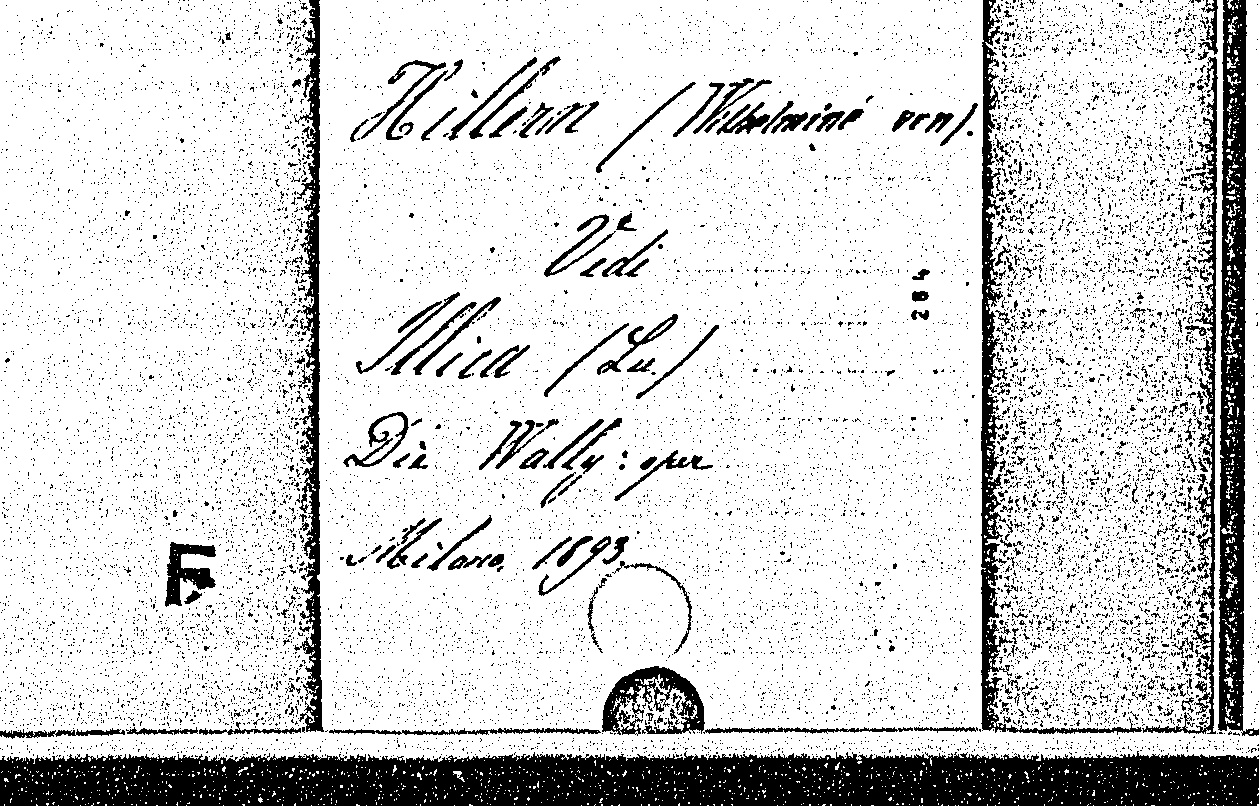 Hillern (Wilhelmine von).
Vedi
Illica (Lu.)
Die Wally: oper
Milano, 1893.
264
F